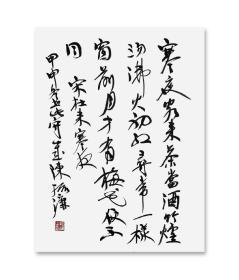 寒夜客来茶當酒竹爐
湯沸火初红尋常一樣
窗前月才有梅花便不
同 宋杜耒寒夜
甲申年 陳